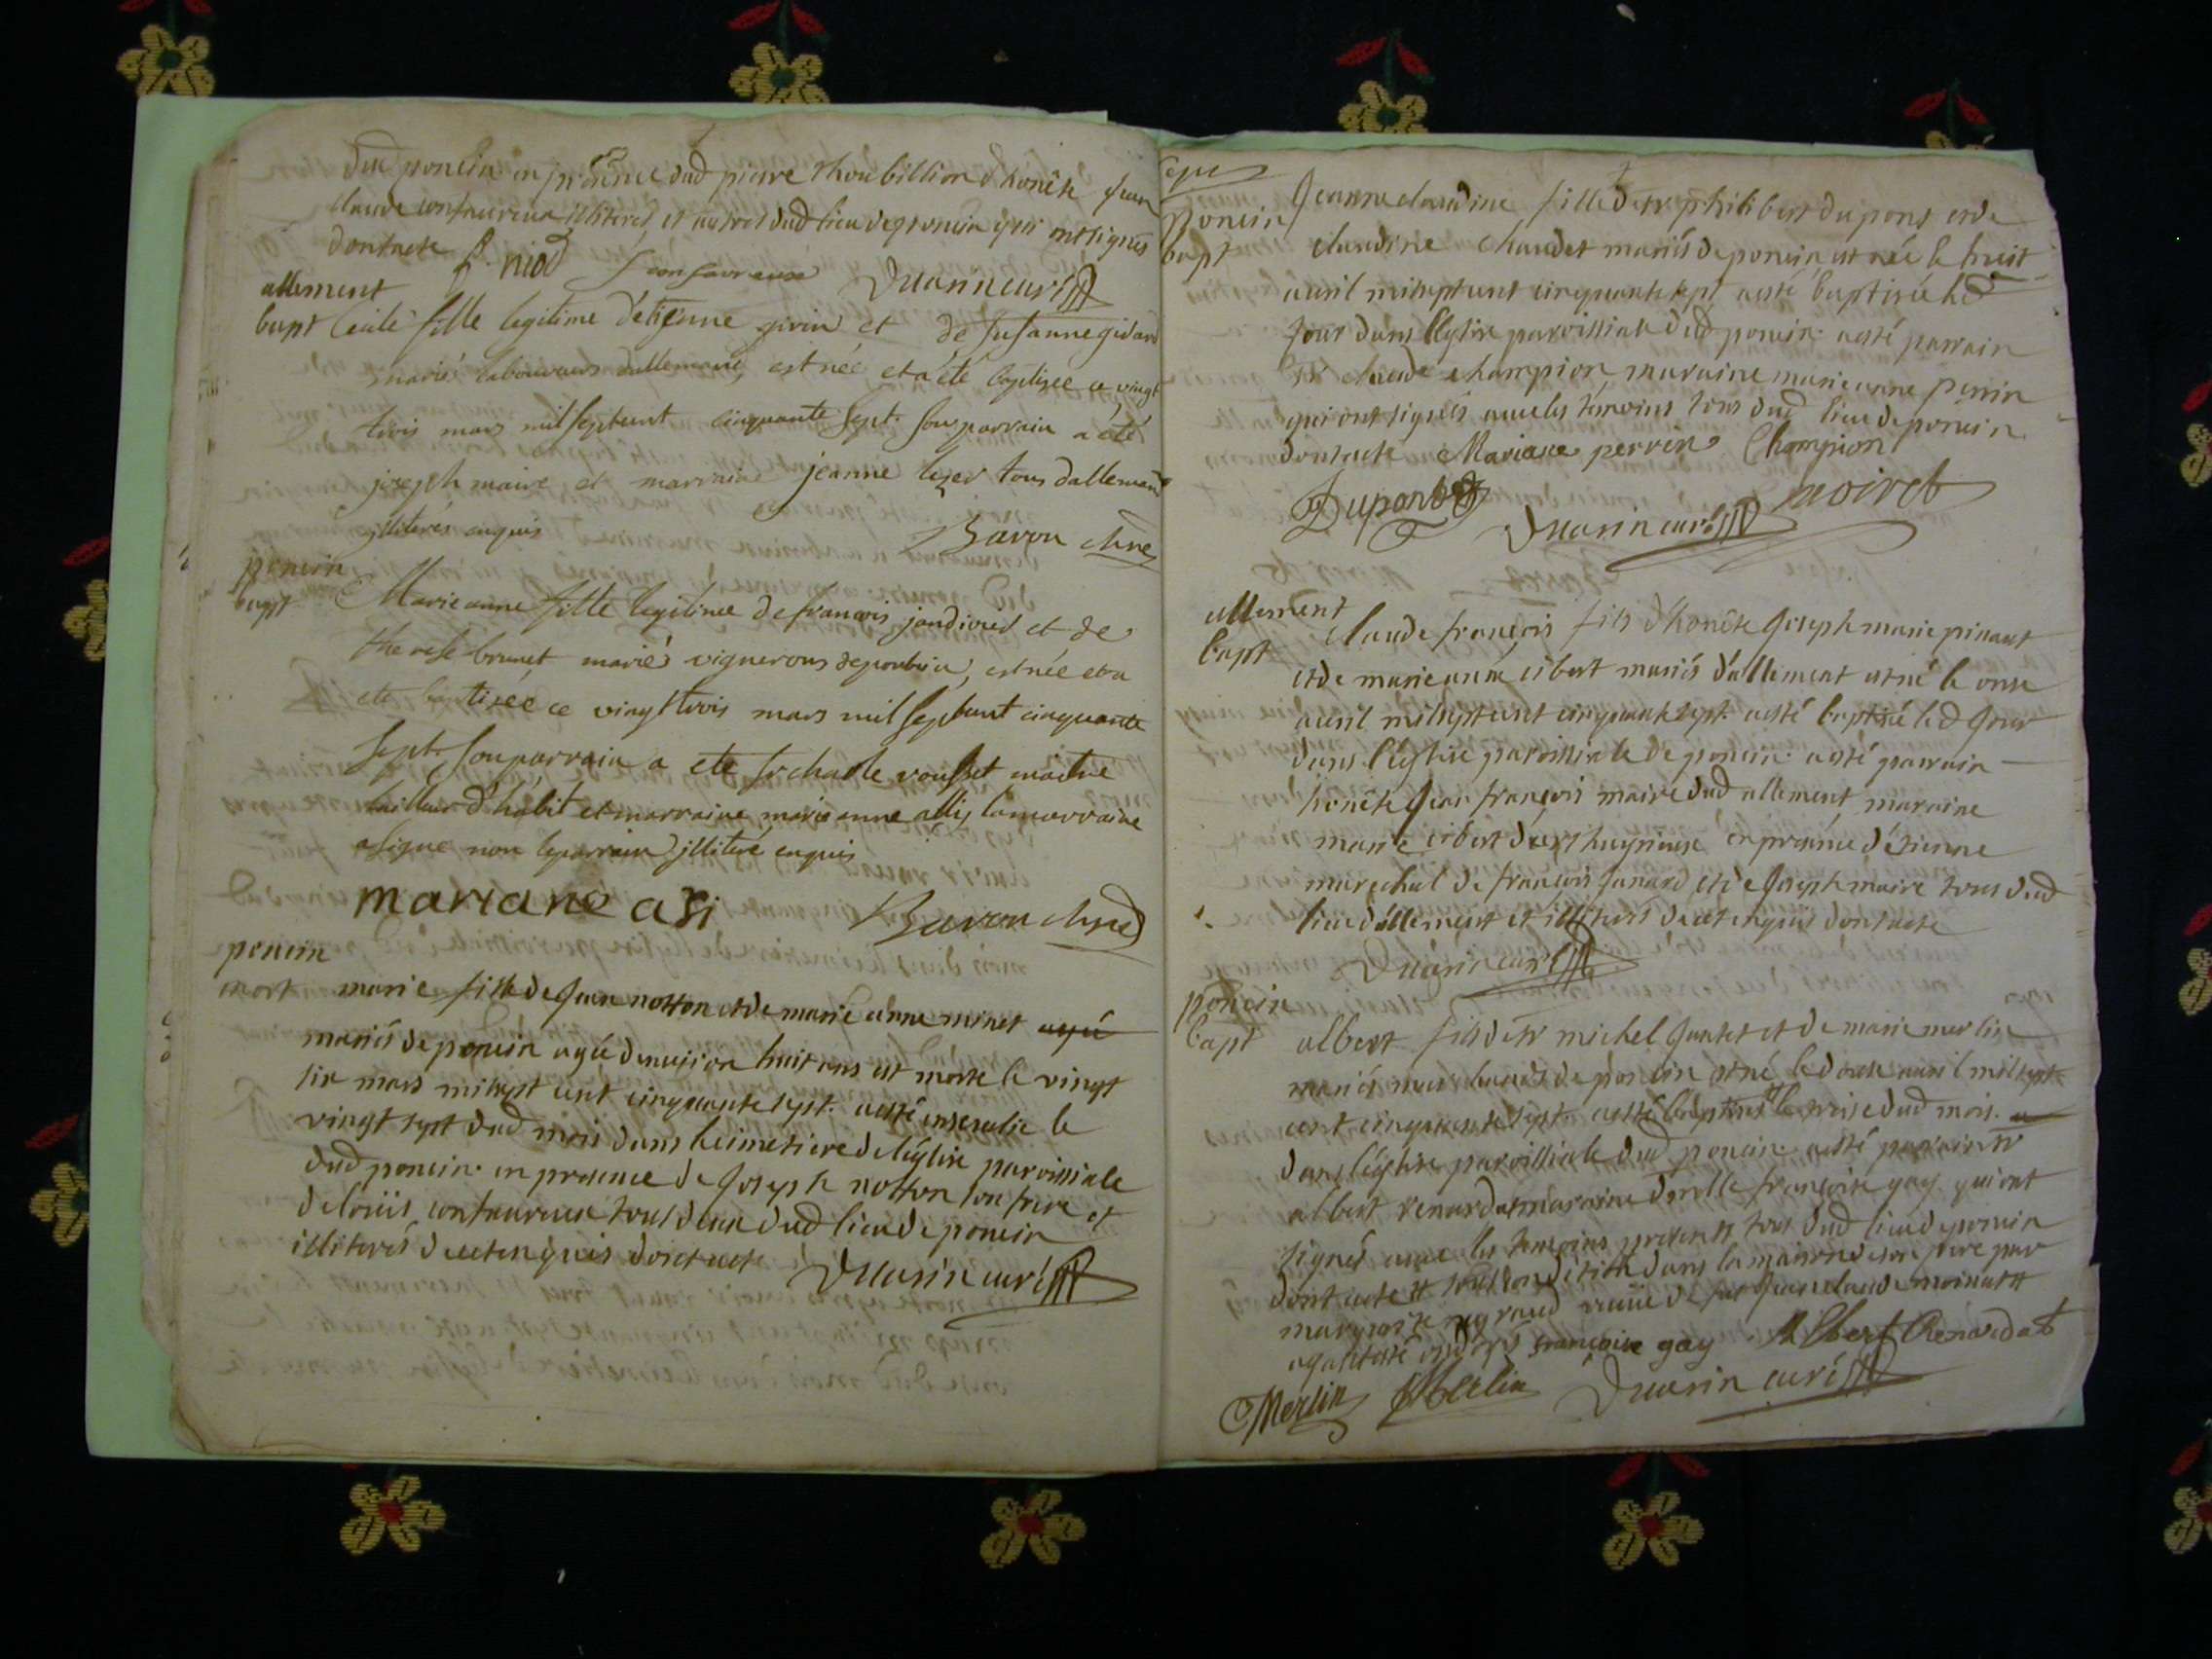 dud poncin en présence dud pierre Thoubillion d'honête jean
claude confavreux illiteres, et autres dud lieu de poncin qui ont signés
dont acte P. niod J confavreux Duarin curé
allement
bapt Cecile fille legitime d'etienne givin et de Susanne gidard
mariés laboureurs dallemand, est née et a été baptisee ce vingt
trois mars mil sept cent cinquante sept. Son parrain a été
joseph maire et marraine jeanne leger tous dallemand
illiterés enquis Bavon
poncin
bapt Marieanne fille legitime de francois jandivret et de
therese brunet mariés vignerons de poncin, est née et a
ete baptisée ce vingt trois mars mil sept cent cinquante
sept. Son parrain a ete sr charle rousset maitre
tailleur d'habit et marraine marie anne allis la marraine
a signe non le parrain illiteré enquis
mariane asi Bavon
poncin
mort marie fille de jean notton et de marie anne minet agée
mariés de poncin agée denviron huit ans est morte le vingt
six mars mil sept cent cinquante sept. a esté ensevelie le
vingt sept dud mois dans le cimetiere de l'église paroissiale
dud poncin. en presence de joseph notton son frere et
de loüis confavreux tous deux dud lieu de poncin
illiterés de ce enquis dont acte Duarin curé
poncin
bapt Jeanne claudine fille de sr philibert dupont et de
claudine chaudet mariés de poncin est née le huit
avril mil sept cent cinquante sept a esté baptisée led
jour dans l'église paroissiale dud poncin. a esté parrain
sr claude champion, maraine marie anne perrin
qui ont signés avec les témoins tous dud lieu de poncin
dont acte Mariane perrin Champion
Dupont Duarin curé noiret
allement
bapt claude françois fils d'honête joseph marie pinaut
et de marie anne cibert mariés d'allement est né le onse
avril mil sept cent cinquante sept. a esté baptisé led jour
dans l'église paroissiale de poncin. a esté parrain
honête jean françois maire dud allement, maraine
marie cibert en présence d'étienne
marechal de françois janard et de joseph maire tous dud
lieu d'allement et illiterés de ce enquis dont acte
Duarin curé
poncin
bapt albert fils de sr michel jantet et de marie merlin
mariés marchands de poncin est né le douse avril mil sept
cent cinquante sept a esté baptisé le treise dud mois. a
dans l'église paroissiale dud poncin a esté parrain sr
albert renardat maraine dmolle françoise gay qui ont
signés avec les temoins presents tous dud lieu de poncin
dont acte et sous condition dans la maison de son pere par
marguerite veuve de jean claude
françoise gay Albert Renardat
Merlin Duarin curé